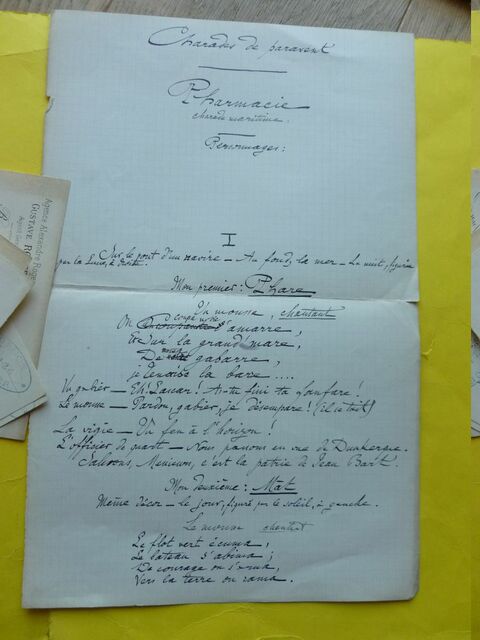 Charades de paravent
Pharmacie
charade maritime.
Personnages:
I
Sur le pont d'un navire — Au fond, la mer — La nuit, figurée
par la Lune, à droite.
Mon premier: Phare
Un mousse, chantant
On coupe notre amarre,
Et sur la grand'mare,
De notre gabarre,
je tenais la barre ....
Un gabier — Eh! Lascar! As-tu fini ta fanfare!
Le mousse — Pardon, gabier, je désempare! (il se tait)
La vigie — Un feu à l'horizon!
L'officier de quart — Nous passons en vue de Dunkerque.
Saluons, Messieurs, c'est la patrie de Jean Bart.
Mon deuxième: Mat
Même décor — Le jour, figuré par le soleil, à gauche.
Le mousse chantant
Le flot vert écuma,
Le bateau s'abima;
De courage on s'arma,
Vers la terre on rama.
Agence Alexandre Roger
GUSTAVE